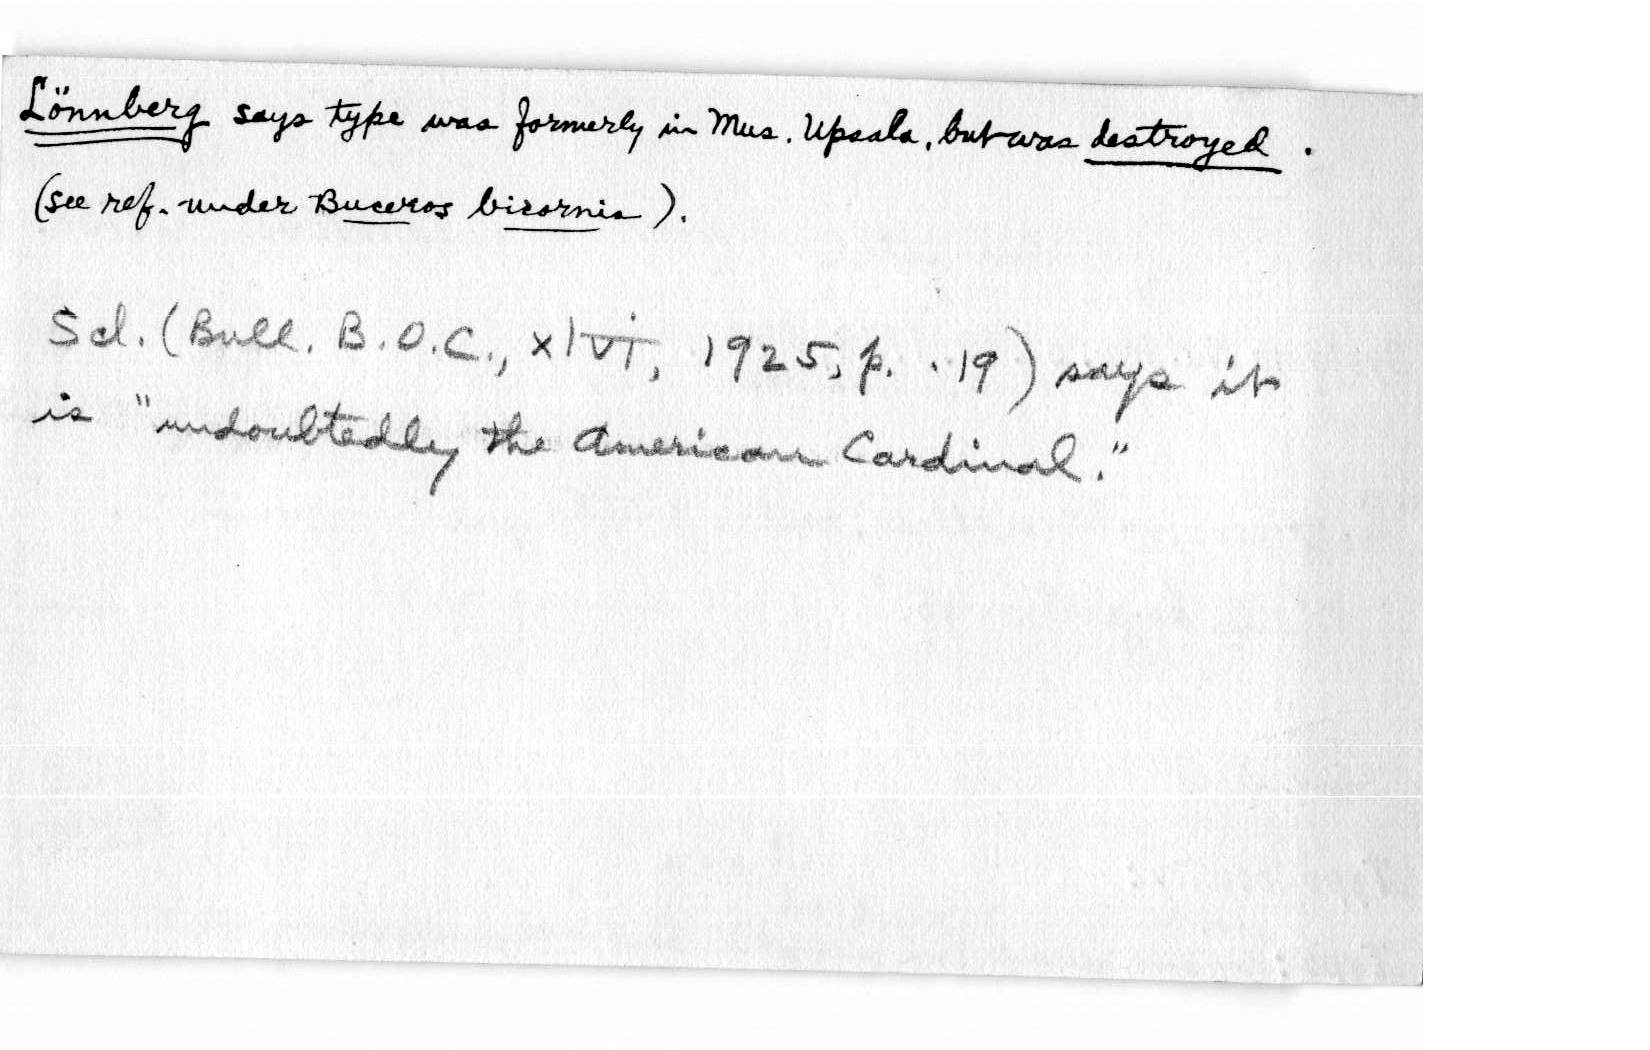 Lönnberg says type was formerly in Mus. Upsala, but was destroyed.
(see ref. under Buceros bicornis).
Scl. (Bull. B.O.C., xlvi, 1925, p. 19) says it
is "undoubtedly the American Cardinal."